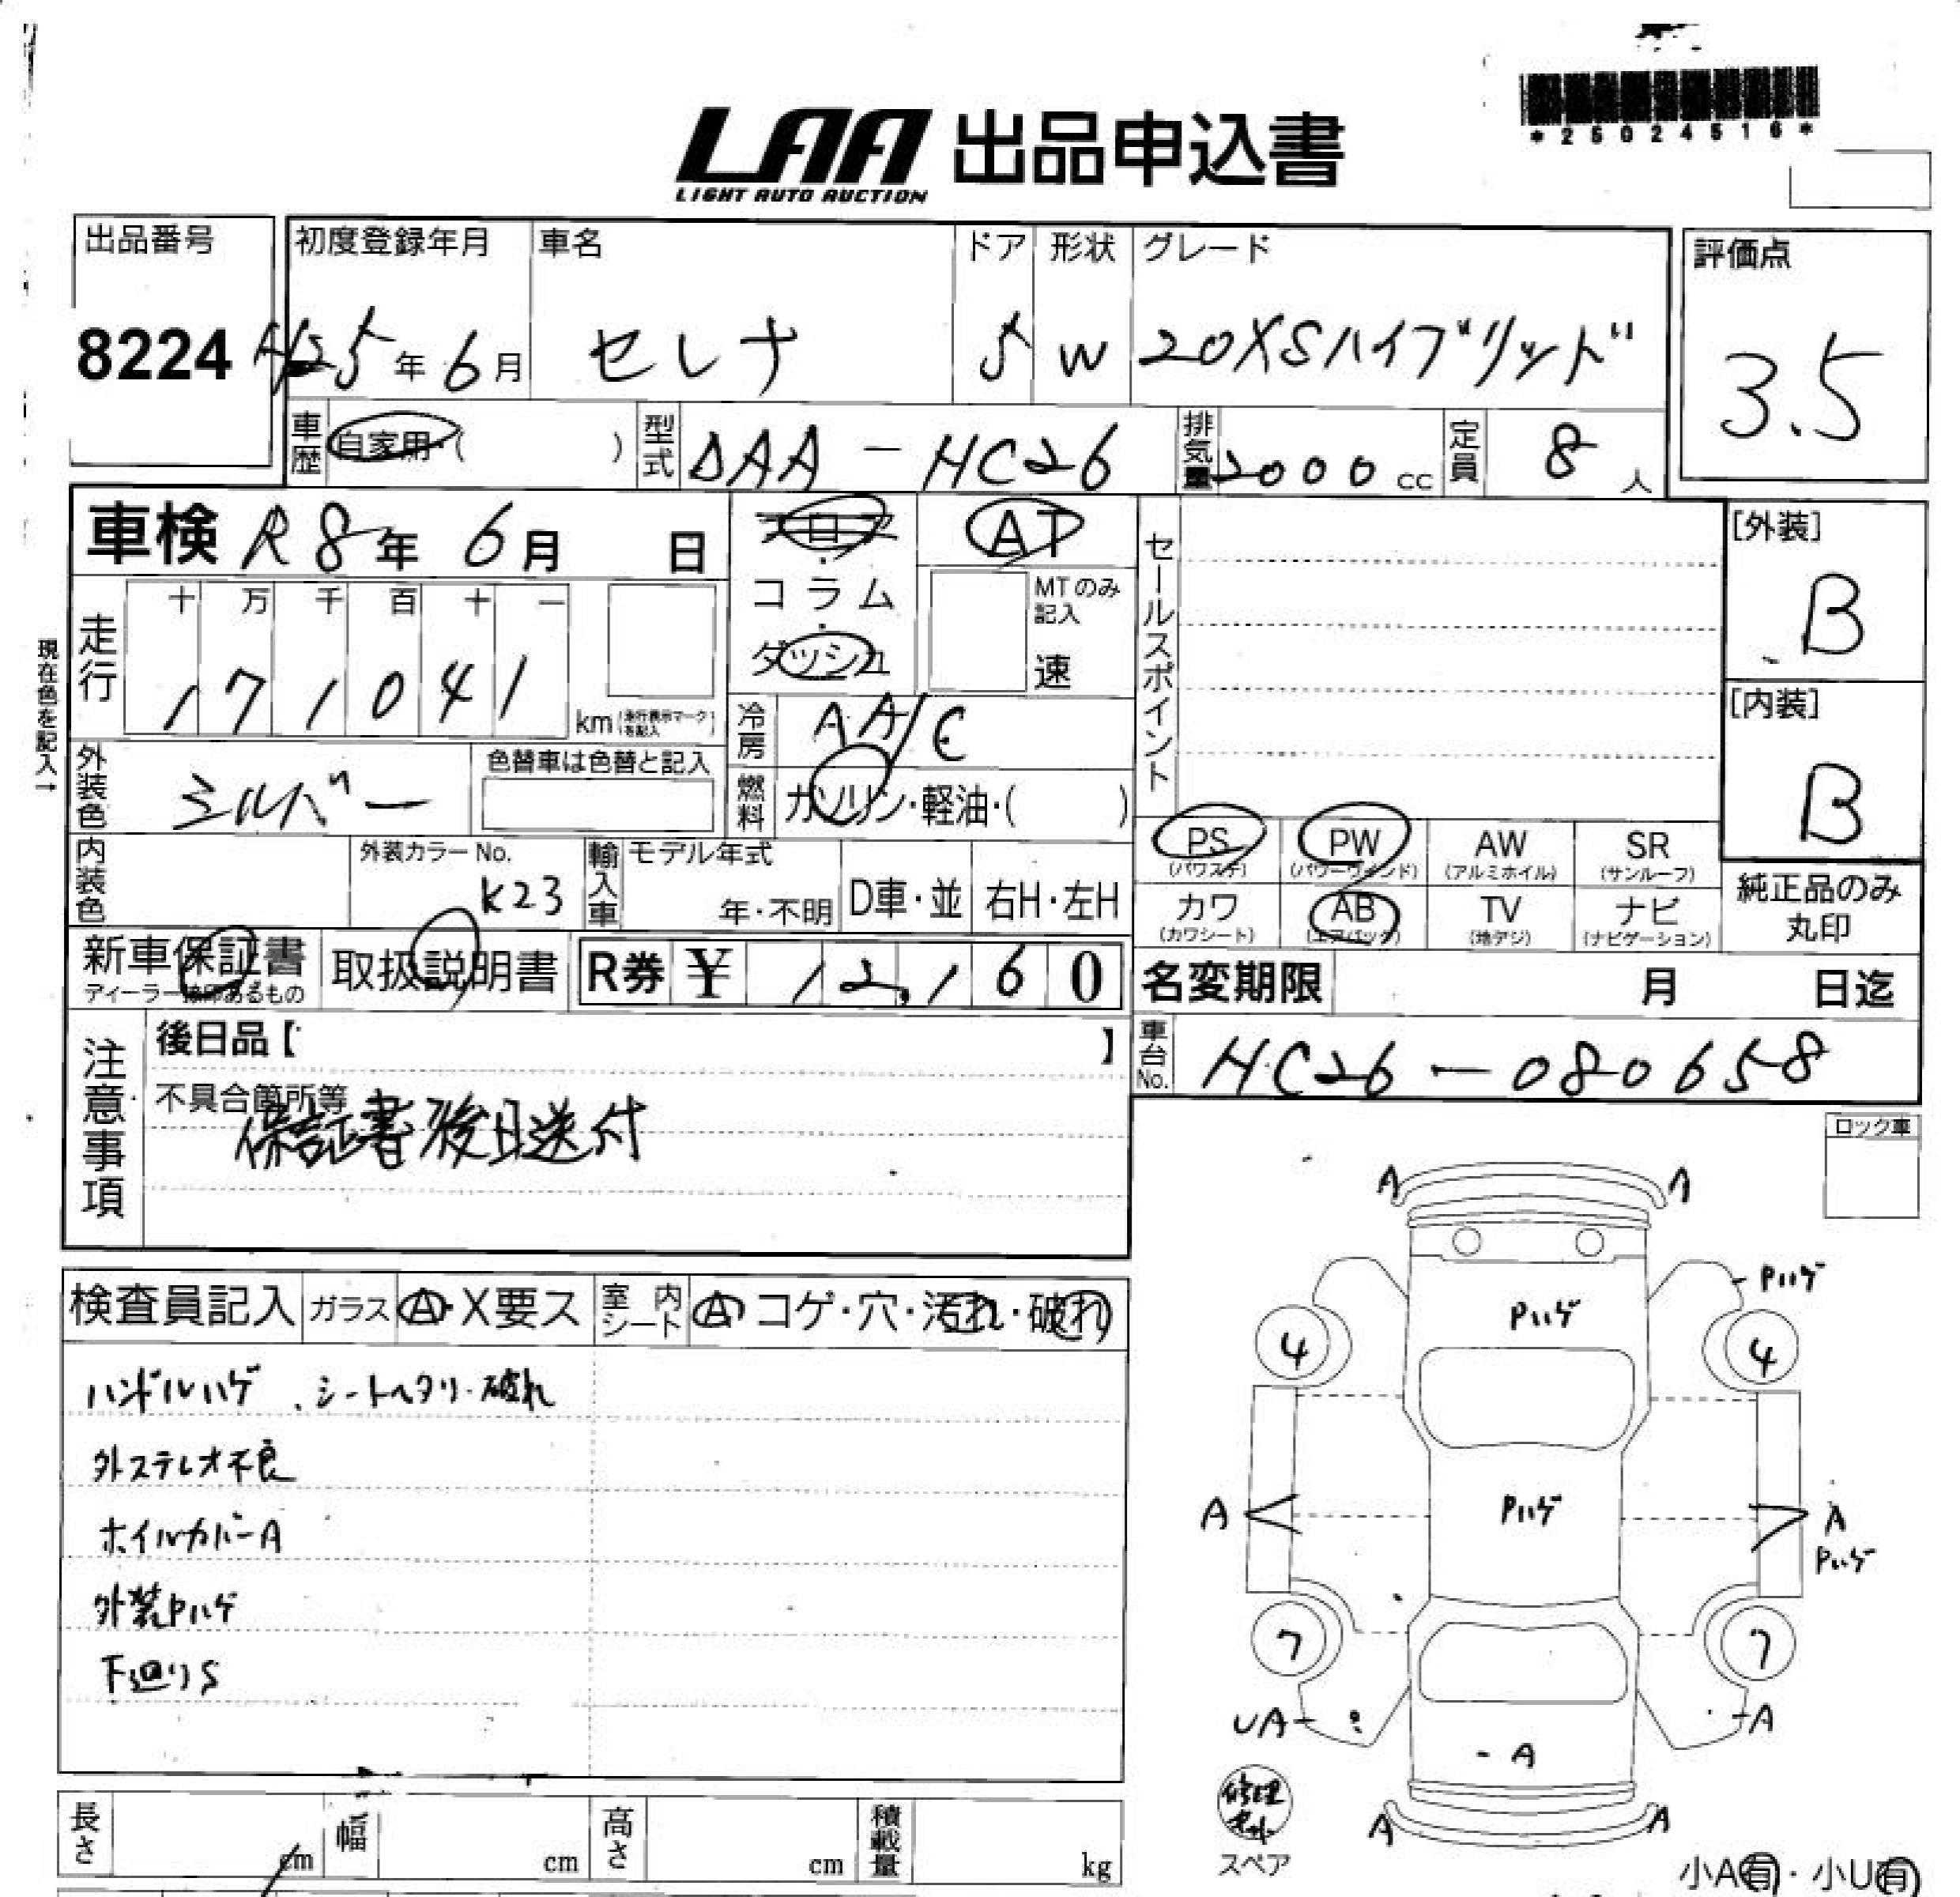 *25024516*
LAA 出品申込書
LIGHT AUTO AUCTION
出品番号 初度登録年月 車名 ドア 形状 グレード 評価点
8224 H25年6月 セレナ 5 W 20XSハイブリッド 3.5
車歴 自家用・( ) 型式 DAA-HC26 排気量 2000cc 定員 8人
車検 R8年6月 日 フロア・コラム・ダッシュ AT セールスポイント [外装]
B
MTのみ記入 速
現在色を記入→
走行 十 万 千 百 十 一
171041 km (走行表示マークを記入)
冷房 AA/C [内装]
B
外装色 シルバー 色替車は色替と記入 燃料 ガソリン・軽油・( )
PS (パワステ) PW (パワーウインド) AW (アルミホイル) SR (サンルーフ)
内装色 外装カラーNo. K23 輸入車 モデル年式 年・不明 D車・並 右H・左H
カワ (カワシート) AB (エアバック) TV (地デジ) ナビ (ナビゲーション) 純正品のみ丸印
新車保証書 取扱説明書 R券 ¥ 12,160 名変期限 月 日迄
ディーラー捺印あるもの
注意事項 後日品【 】 車台No. HC26-080658
不具合箇所等
保証書後日送付
ロック車
検査員記入 ガラス A・X要ス 室内シート A・コゲ・穴・汚れ・破れ
ハンドルハゲ、シートヘタリ・破れ
外ステレオ不良
ホイルカバーA
外装Pハゲ
下廻りS
A A
Pハゲ
Pハゲ
4 4
A Pハゲ A
Pハゲ
7 7
UA A
A
修理キット
スペア
A A
長さ cm 幅 cm 高さ cm 積載量 kg
小A有・小U有